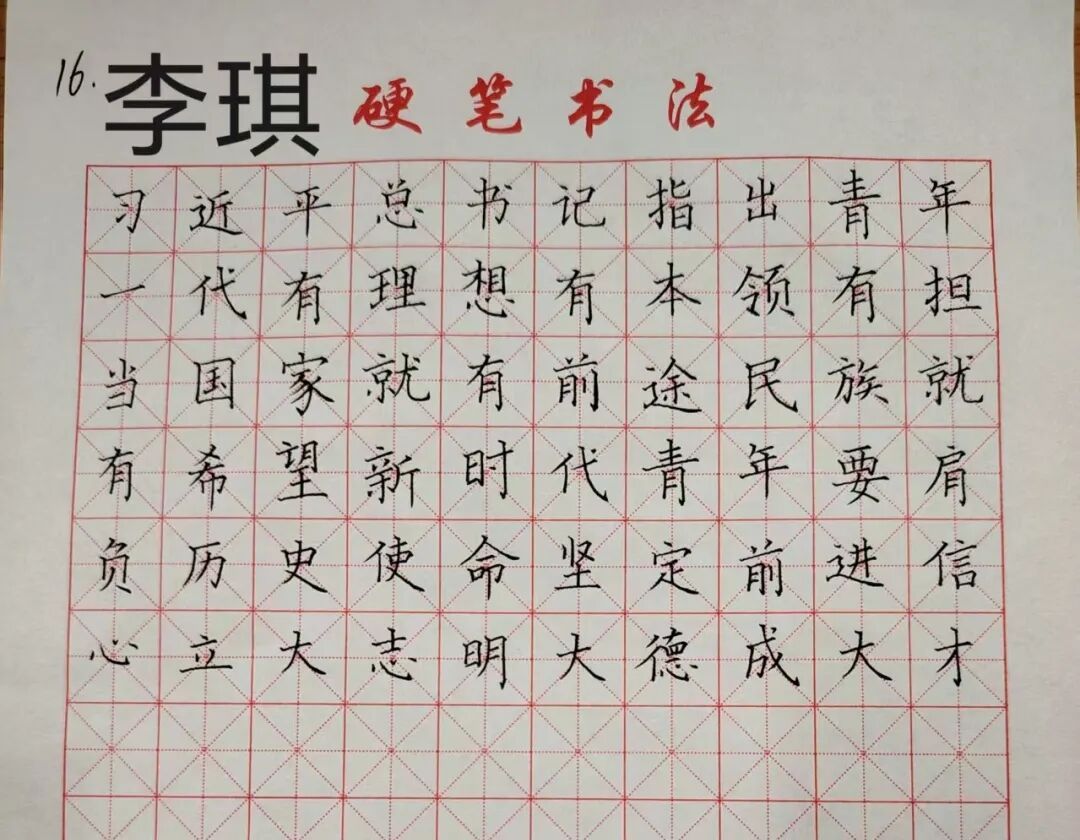 16. 李琪 硬笔书法
习近平总书记指出青年
一代有理想有本领有担
当国家就有前途民族就
有希望新时代青年要肩
负历史使命坚定前进信
心立大志明大德成大才